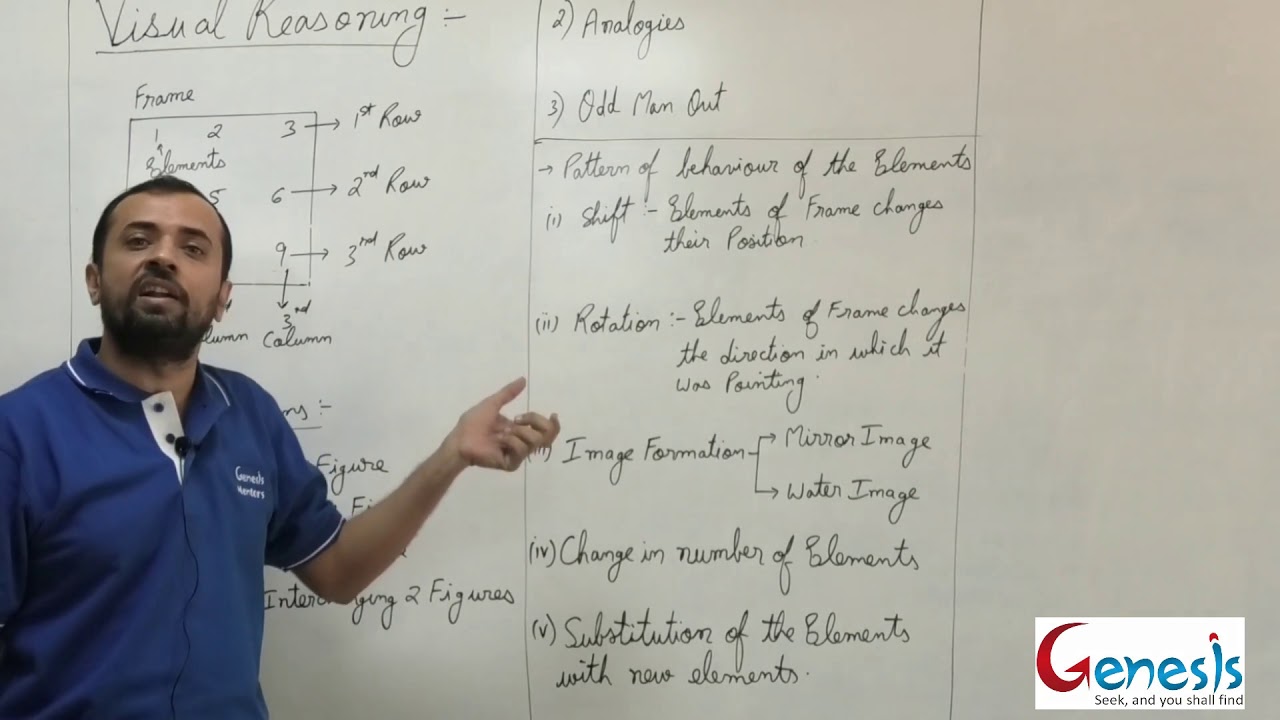 Visual Reasoning :-
Frame
1 2 3 → 1st Row
Elements
5 6 → 2nd Row
9 → 3rd Row
3rd
column
Figure
Interchanging 2 Figures
2) Analogies
3) Odd Man Out
→ Pattern of behaviour of the Elements
(i) Shift :- Elements of Frame changes
their Position.
(ii) Rotation :- Elements of Frame changes
the direction in which it
was Pointing.
Image Formation → Mirror Image
→ Water Image
(iv) Change in number of Elements
(v) Substitution of the Elements
with new elements.
Genesis
Mentors
Genesis
Seek, and you shall find